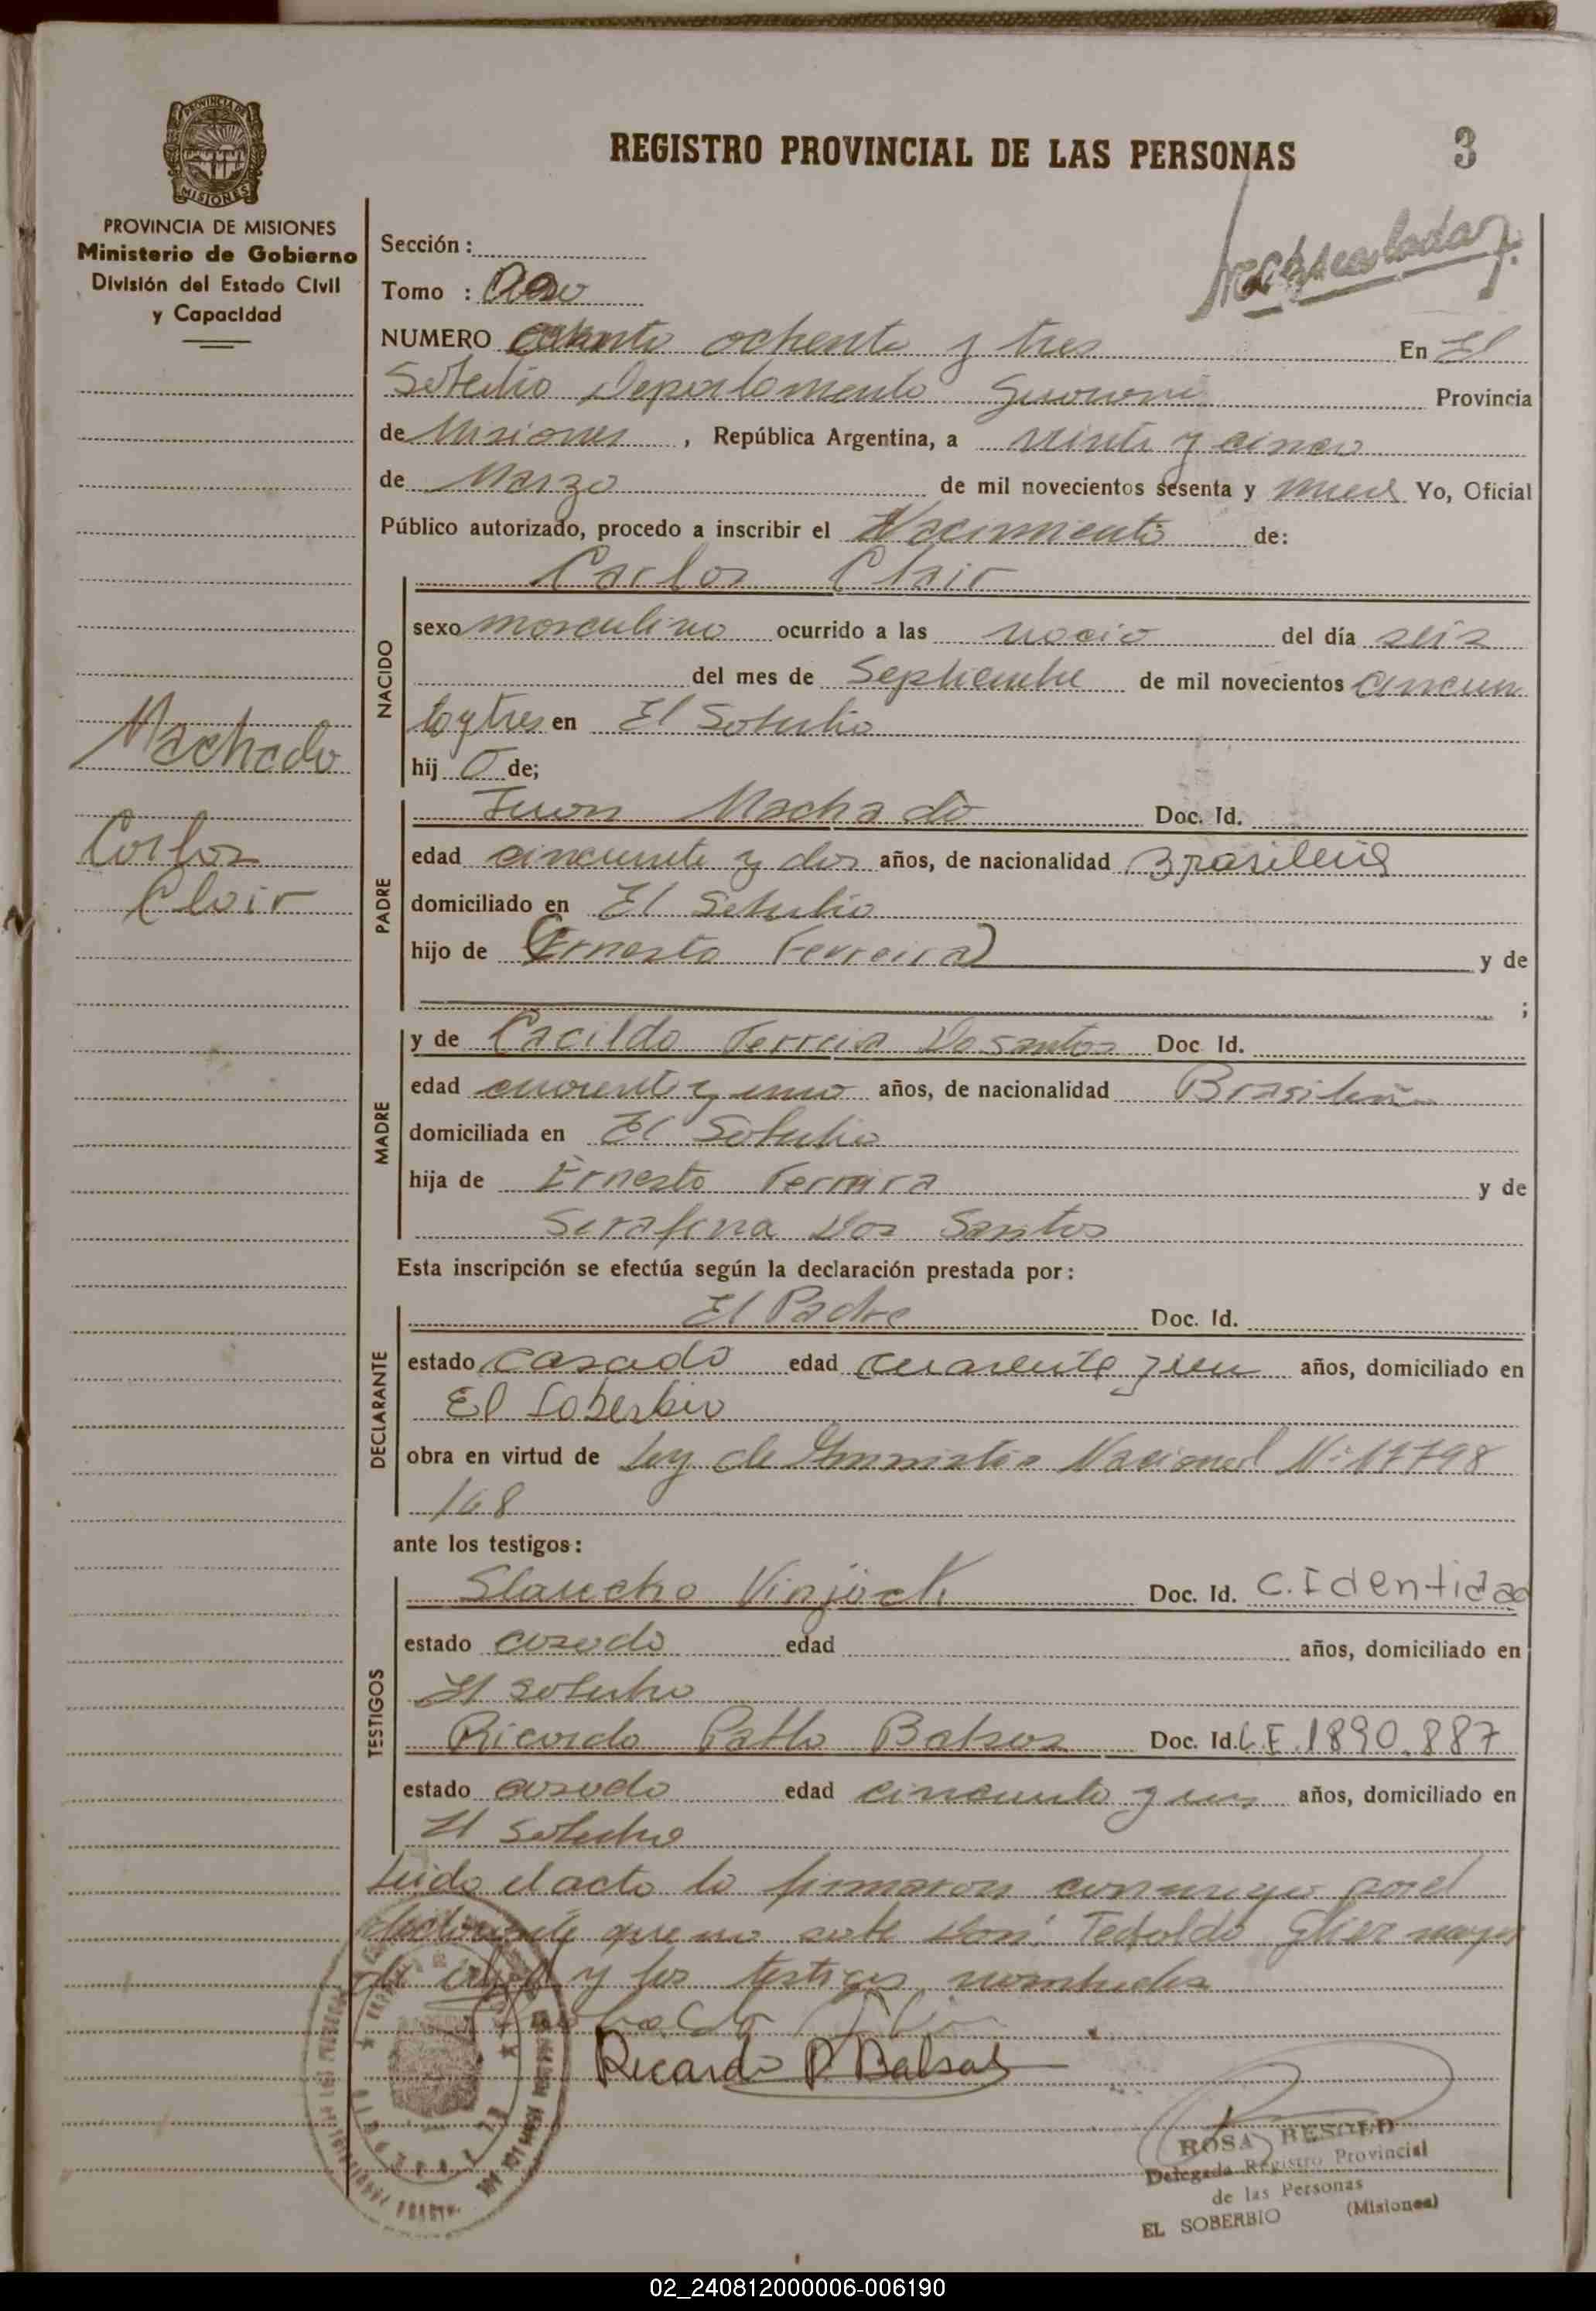 REGISTRO PROVINCIAL DE LAS PERSONAS
3
PROVINCIA DE MISIONES
Ministerio de Gobierno
División del Estado Civil
y Capacidad
Sección :
Tomo :
NUMERO ochenta y tres En El
Soberbio Departamento Guarani Provincia
de Misiones , República Argentina, a veinte y cinco
de Marzo de mil novecientos sesenta y nueve Yo, Oficial
Público autorizado, procedo a inscribir el Nacimiento de:
Carlos Clair
NACIDO
sexo masculino ocurrido a las del día seis
del mes de Septiembre de mil novecientos cincuen
ta y tres en El Soberbio
hij o de;
Machado
Carlos
Clair
PADRE
Juan Machado Doc. Id.
edad cincuenta y dos años, de nacionalidad Brasileña
domiciliado en El Soberbio
hijo de (Ernesto Ferreira) y de
;
MADRE
y de Cacilda Ferreira Do santos Doc Id.
edad cuarenta y uno años, de nacionalidad Brasileña
domiciliada en El Soberbio
hija de Ernesto Ferreira y de
Serafina Dos Santos
Esta inscripción se efectúa según la declaración prestada por :
DECLARANTE
El Padre Doc. Id.
estado casado edad cuarenta y un años, domiciliado en
El Soberbio
obra en virtud de Ley de Amnistia Nacional Nº 17798
/68
ante los testigos :
TESTIGOS
Doc. Id. C. Identidad
estado casado edad años, domiciliado en
El Soberbio
Ricardo Pablo Balsas Doc. Id. L.E. 1890.887
estado casado edad cincuenta y un años, domiciliado en
El Soberbio
Leido el acta la firmaron conmigo por el
declarante que no sabe Don: Tedoldo mayor
de edad y los testigos nombrados
Ricardo P. Balsas
ROSA BESOLD
Delegada Registro Provincial
de las Personas
EL SOBERBIO (Misiones)
02_240812000006-006190